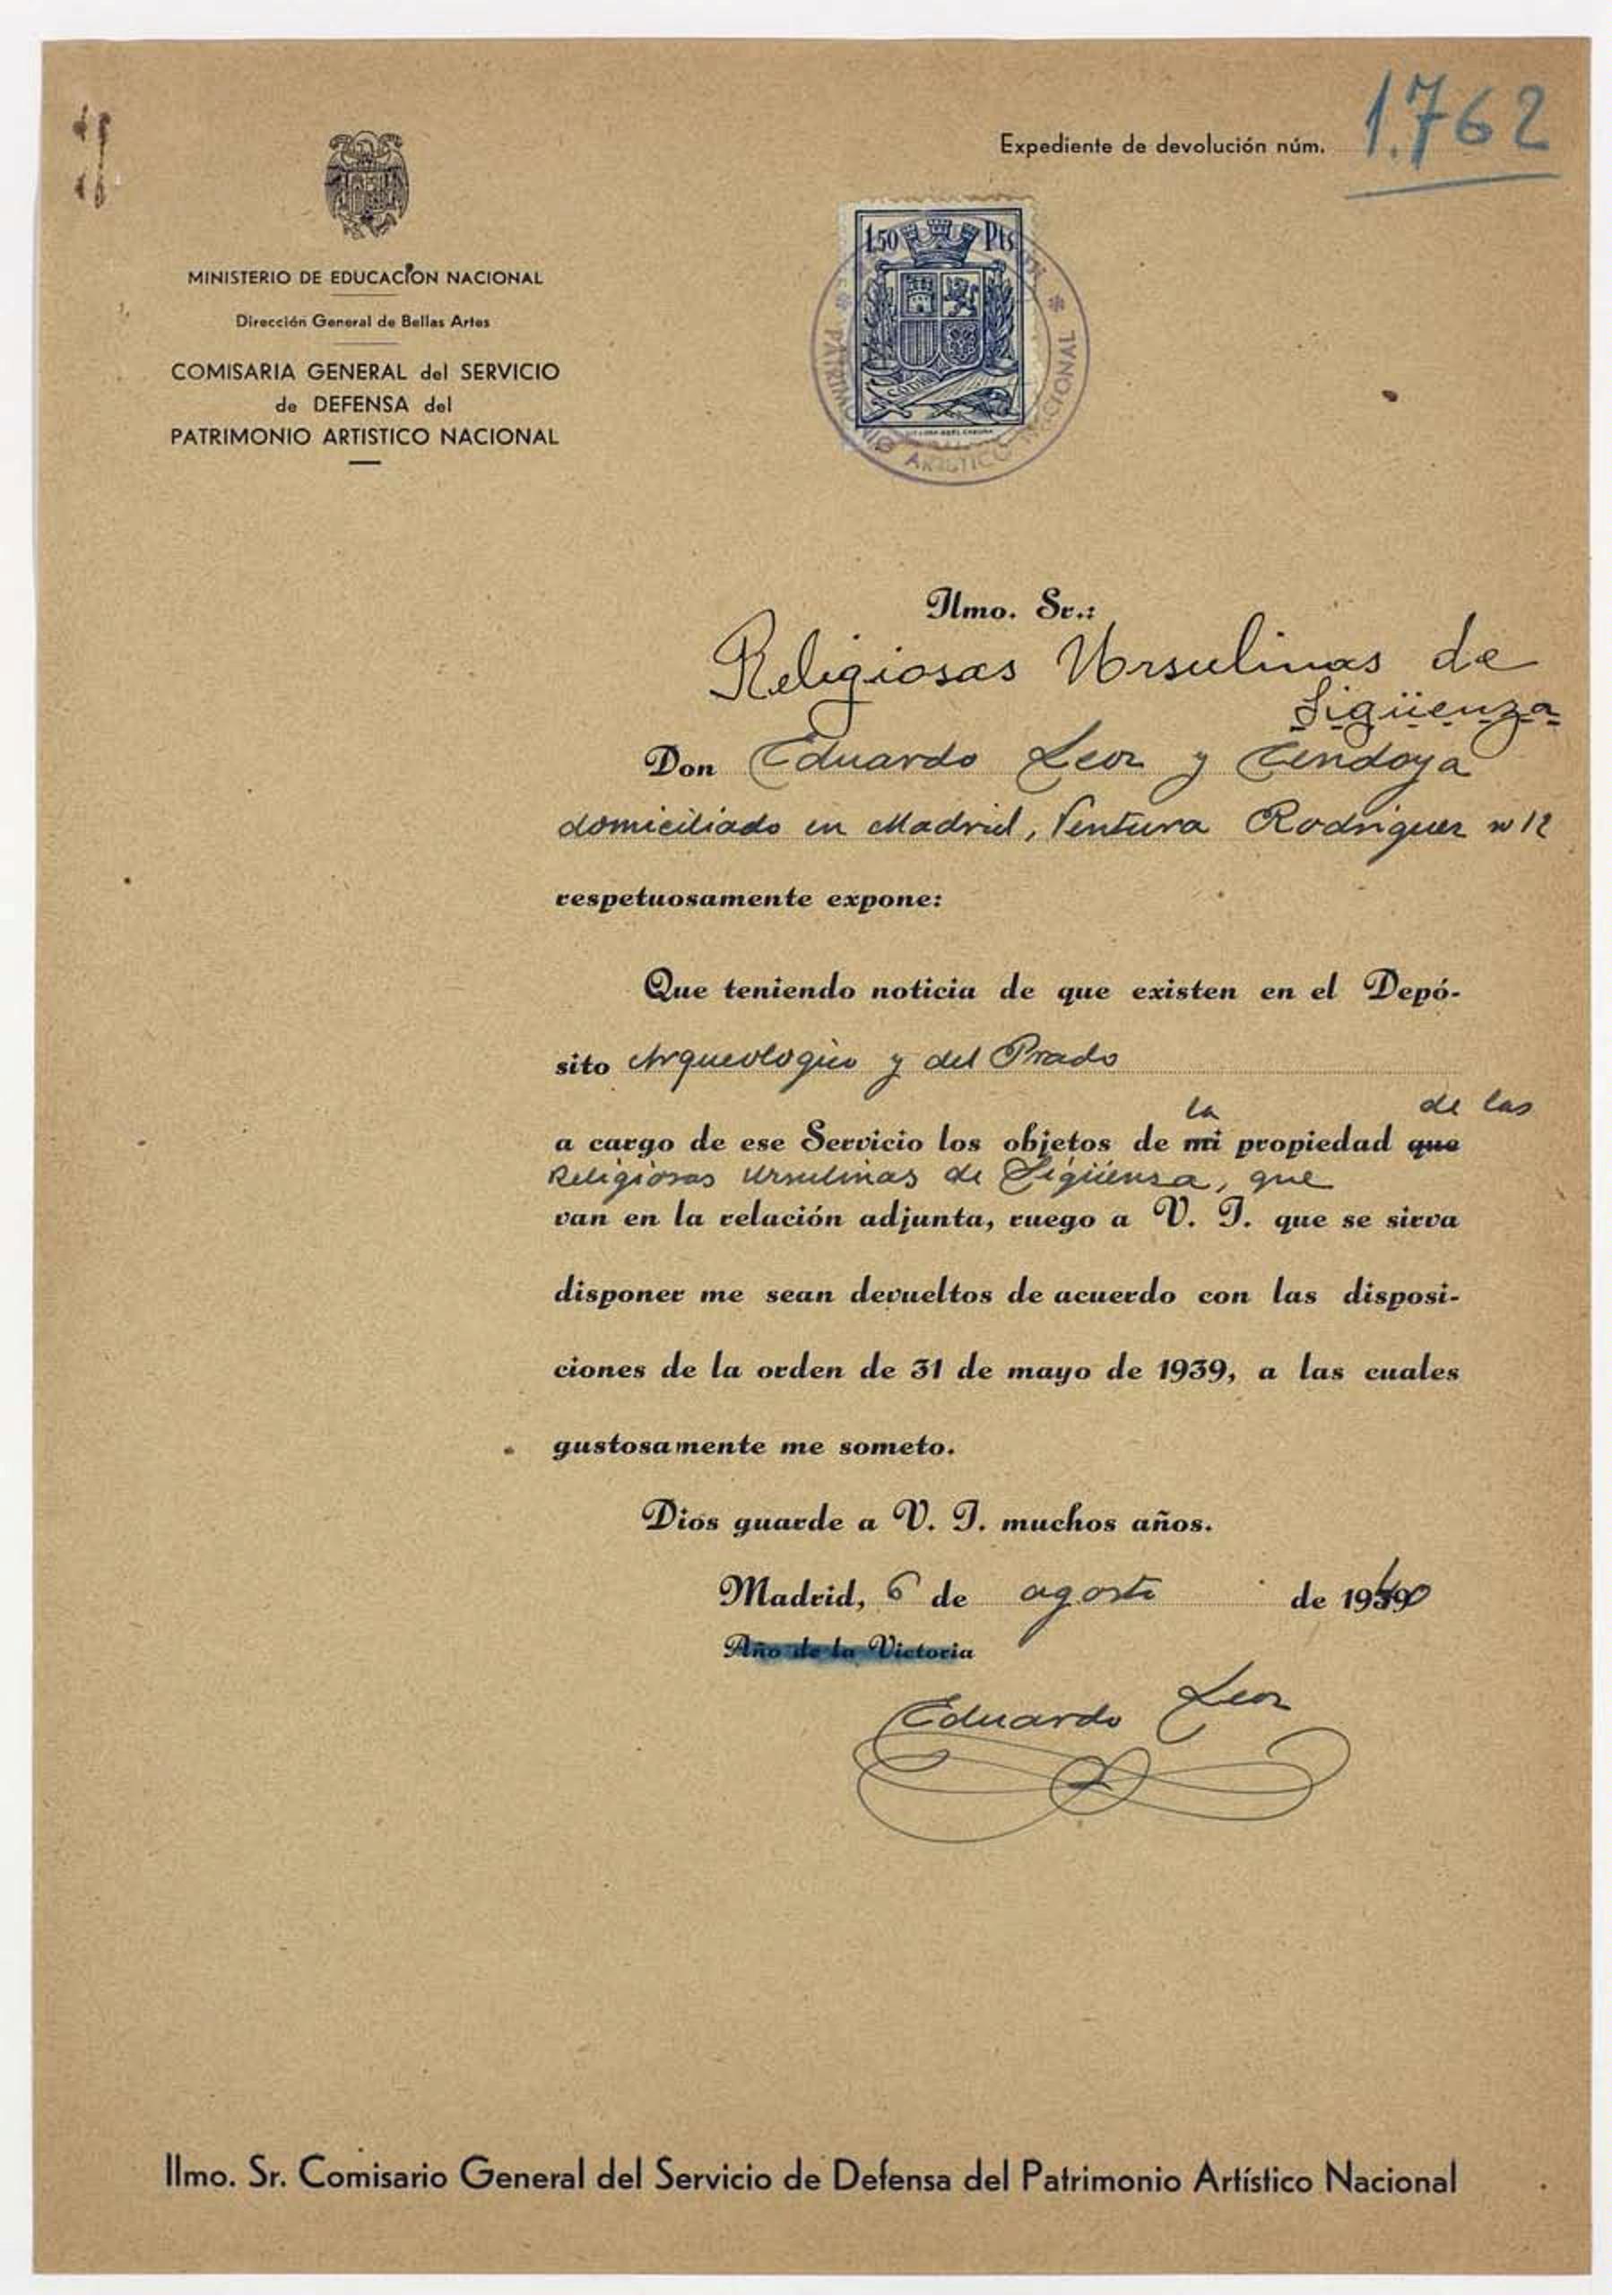 Expediente de devolución núm. 1.762
MINISTERIO DE EDUCACION NACIONAL
Dirección General de Bellas Artes
COMISARIA GENERAL del SERVICIO
de DEFENSA del
PATRIMONIO ARTISTICO NACIONAL
1,50 Pts
PATRIMONIO ARTISTICO NACIONAL
Ilmo. Sr.:
Religiosas Ursulinas de
Sigüenza
Don Eduardo Leon y Cendoya
domiciliado en Madrid, Ventura Rodriguez nº 12
respetuosamente expone:
Que teniendo noticia de que existen en el Depó-
sito Arqueologico y del Prado
la de las
a cargo de ese Servicio los objetos de mi propiedad que
Religiosas Ursulinas de Sigüenza, que
van en la relación adjunta, ruego a V. I. que se sirva
disponer me sean devueltos de acuerdo con las disposi-
ciones de la orden de 31 de mayo de 1939, a las cuales
gustosamente me someto.
Dios guarde a V. I. muchos años.
Madrid, 6 de agosto de 1940
Año de la Victoria
Eduardo Leon
Ilmo. Sr. Comisario General del Servicio de Defensa del Patrimonio Artístico Nacional